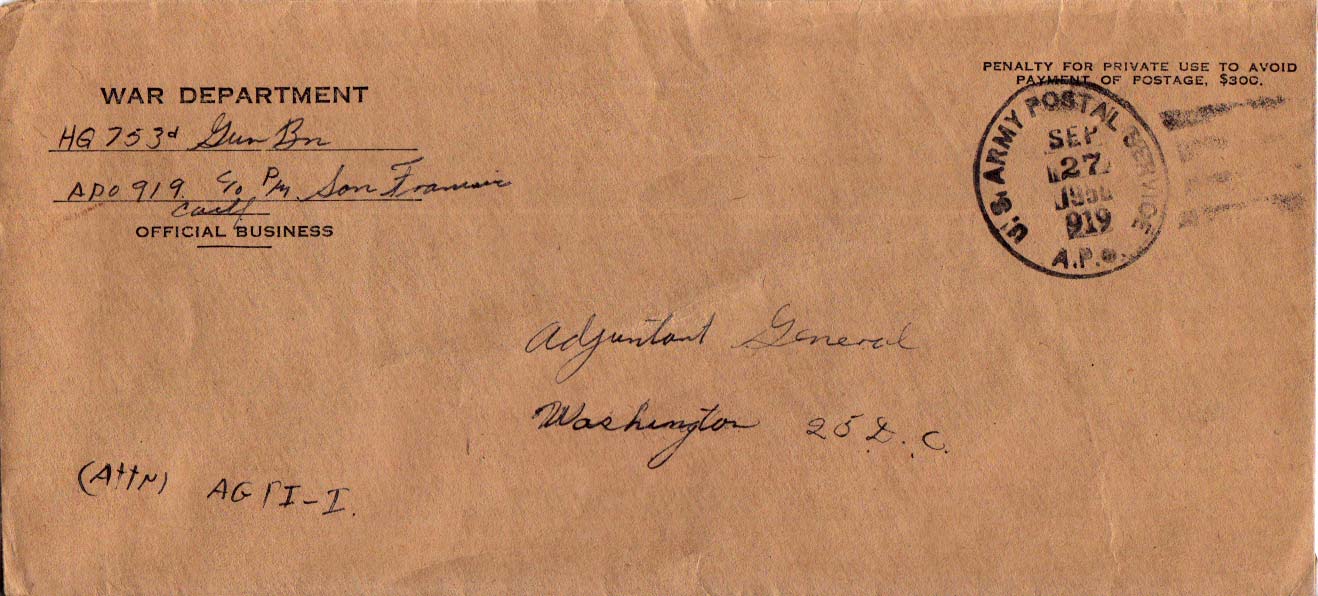 WAR DEPARTMENT
HQ 753d Gun Bn
APO 919 c/o P/M San Francisco
Calif
OFFICIAL BUSINESS
PENALTY FOR PRIVATE USE TO AVOID
PAYMENT OF POSTAGE, $300.
U.S. ARMY POSTAL SERVICE
SEP
27
919
A.P.O.
Adjuntant General
Washington 25 D.C.
(Attn) AG PI-I.